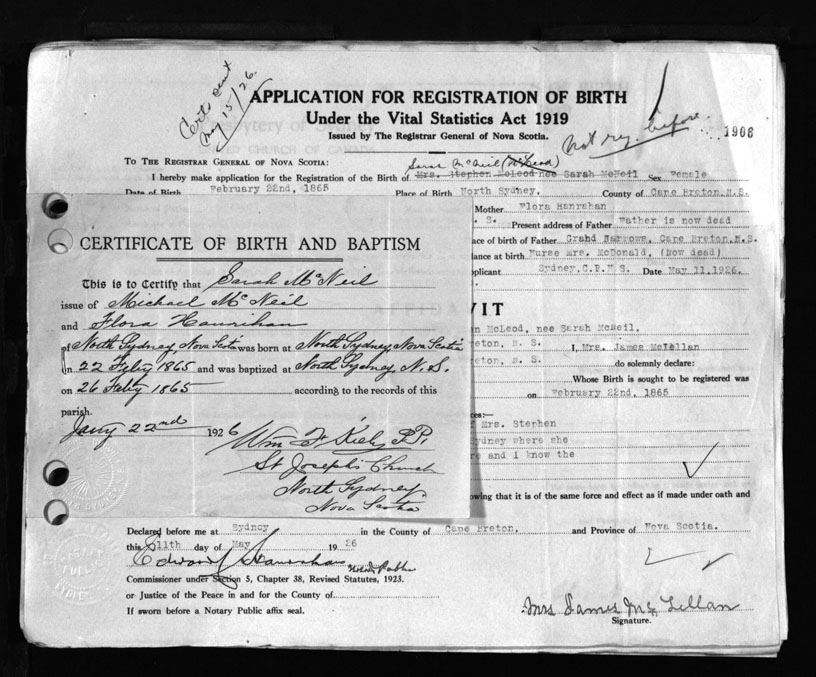 Certs sent
May 15/26.
APPLICATION FOR REGISTRATION OF BIRTH
Under the Vital Statistics Act 1919
Issued by The Registrar General of Nova Scotia.
Not reg. before.
1908
TO THE REGISTRAR GENERAL OF NOVA SCOTIA:
Sarah McNeil (McLeod)
I hereby make application for the Registration of the Birth of Mrs. Stephen McLeod nee Sarah McNeil Sex Female
Date of Birth February 22nd, 1865 Place of Birth North Sydney, County of Cape Breton,N.S.
Mother Flora Hanrahan
S. Present address of Father Father is now dead
ace of birth of Father Grand Narrows, Cape Breton,N.S.
ance at birth Nurse Mrs. McDonald, (Now dead)
plicant Sydney,C.B.N S. Date May 11,1926.
VIT
n McLeod, nee Sarah McNeil,
reton, N. S. I, Mrs. James McLellan
eton, N. S. do solemnly declare:
Whose Birth is sought to be registered was
on February 22nd, 1865
ces:—
f Mrs. Stephen
Sydney where she
re and I know the
owing that it is of the same force and effect as if made under oath and
CERTIFICATE OF BIRTH AND BAPTISM
This is to Certify that Sarah McNeil
issue of Michael McNeil
and Flora Haurihan
of North Sydney, Nova Scotia was born at North Sydney, Nova Scotia
on 22 Feby 1865 and was baptized at North Sydney, N. S.
on 26 Feby 1865 according to the records of this
parish.
Jany 22nd 1926
Wm F Kiely P.P.
St Joseph's Church
North Sydney,
Nova Scotia
Declared before me at Sydney in the County of Cape Breton, and Province of Nova Scotia.
this 11th day of May 1926
Notary Public
Commissioner under Section 5, Chapter 38, Revised Statutes, 1923.
or Justice of the Peace in and for the County of
If sworn before a Notary Public affix seal.
Mrs James McLellan
Signature.